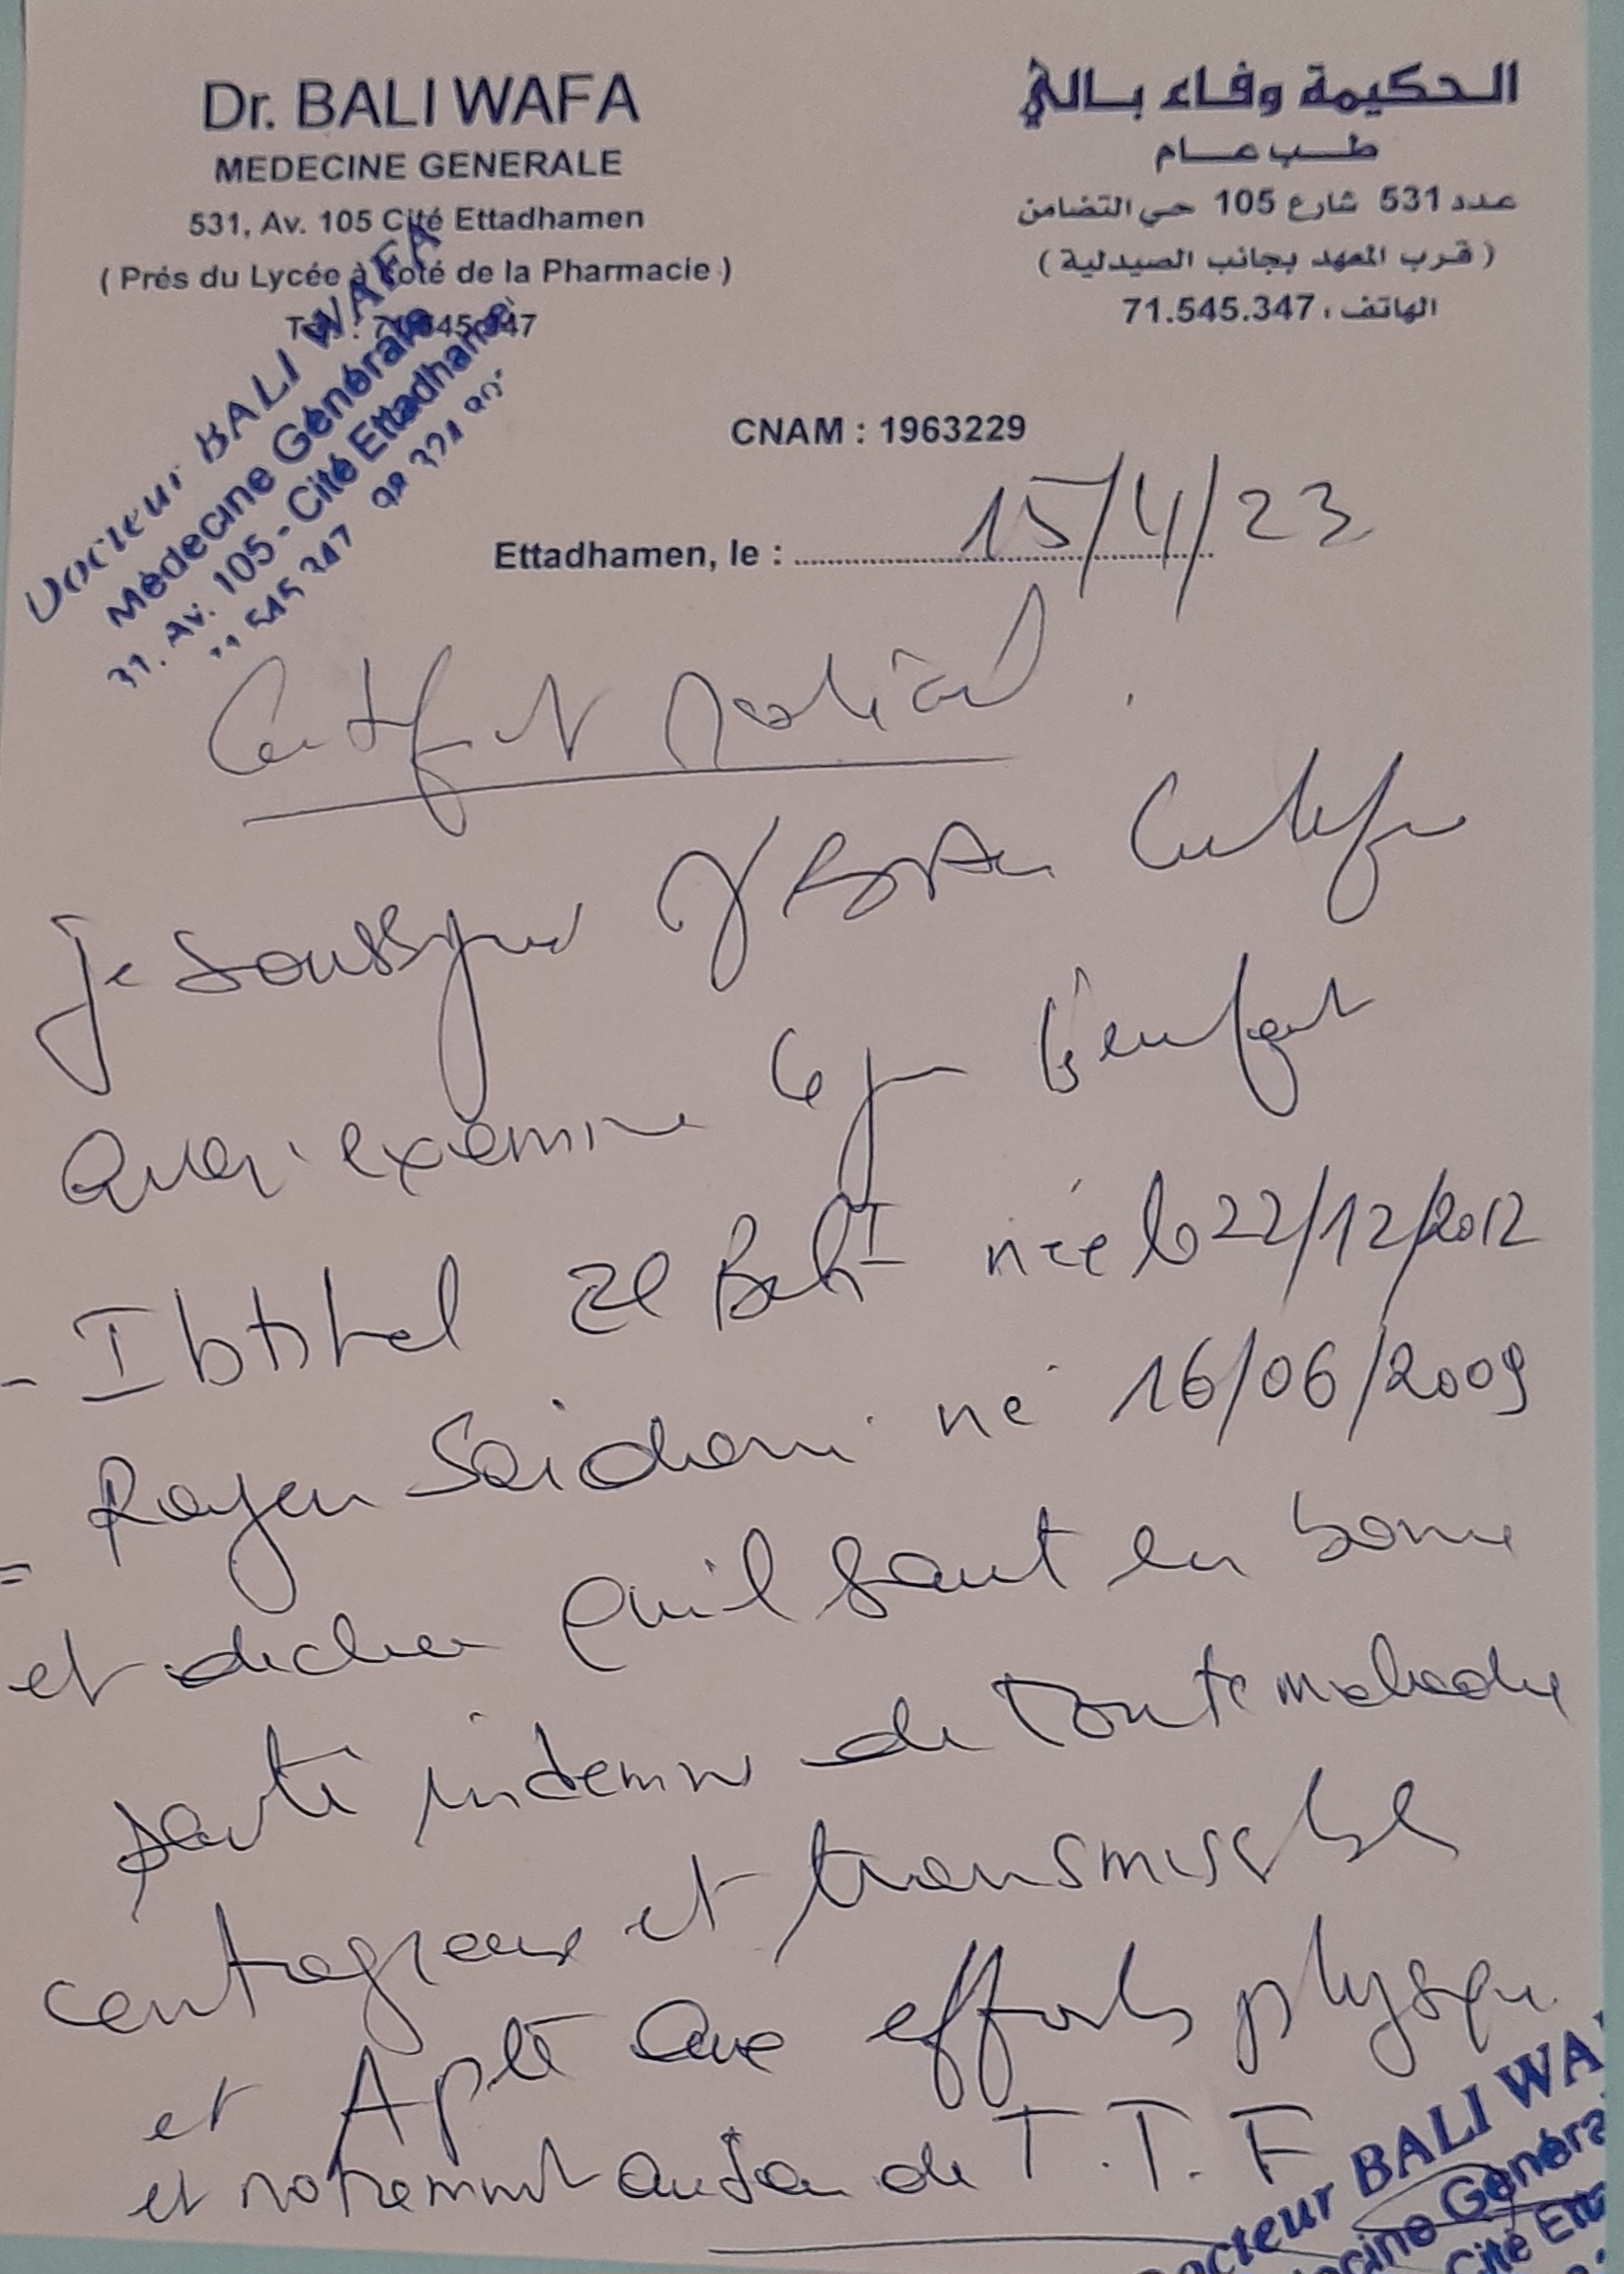 Dr. BALI WAFA
MEDECINE GENERALE
531, Av. 105 Cité Ettadhamen
( Prés du Lycée à Coté de la Pharmacie )
71.545.347
الحكيمة وفاء بالي
طب عام
عدد 531 شارع 105 حي التضامن
( قرب المعهد بجانب الصيدلية )
الهاتف : 71.545.347
Docteur BALI WAFA
Médecine Générale
31. Av. 105 - Cité Ettadhamen
CNAM : 1963229
Ettadhamen, le : 15/4/23
Certificat Médical
Je soussigné Certifie
examiné ce jour l'enfant
- née le 22/12/2012
= Rayen Saidani né 16/06/2009
et déclare qu'il sont en bonne
santé indemne de toute maladie
contagieuse et transmissible
et Apte aux efforts physique
et notremment de T.T.F
Docteur BALI WA